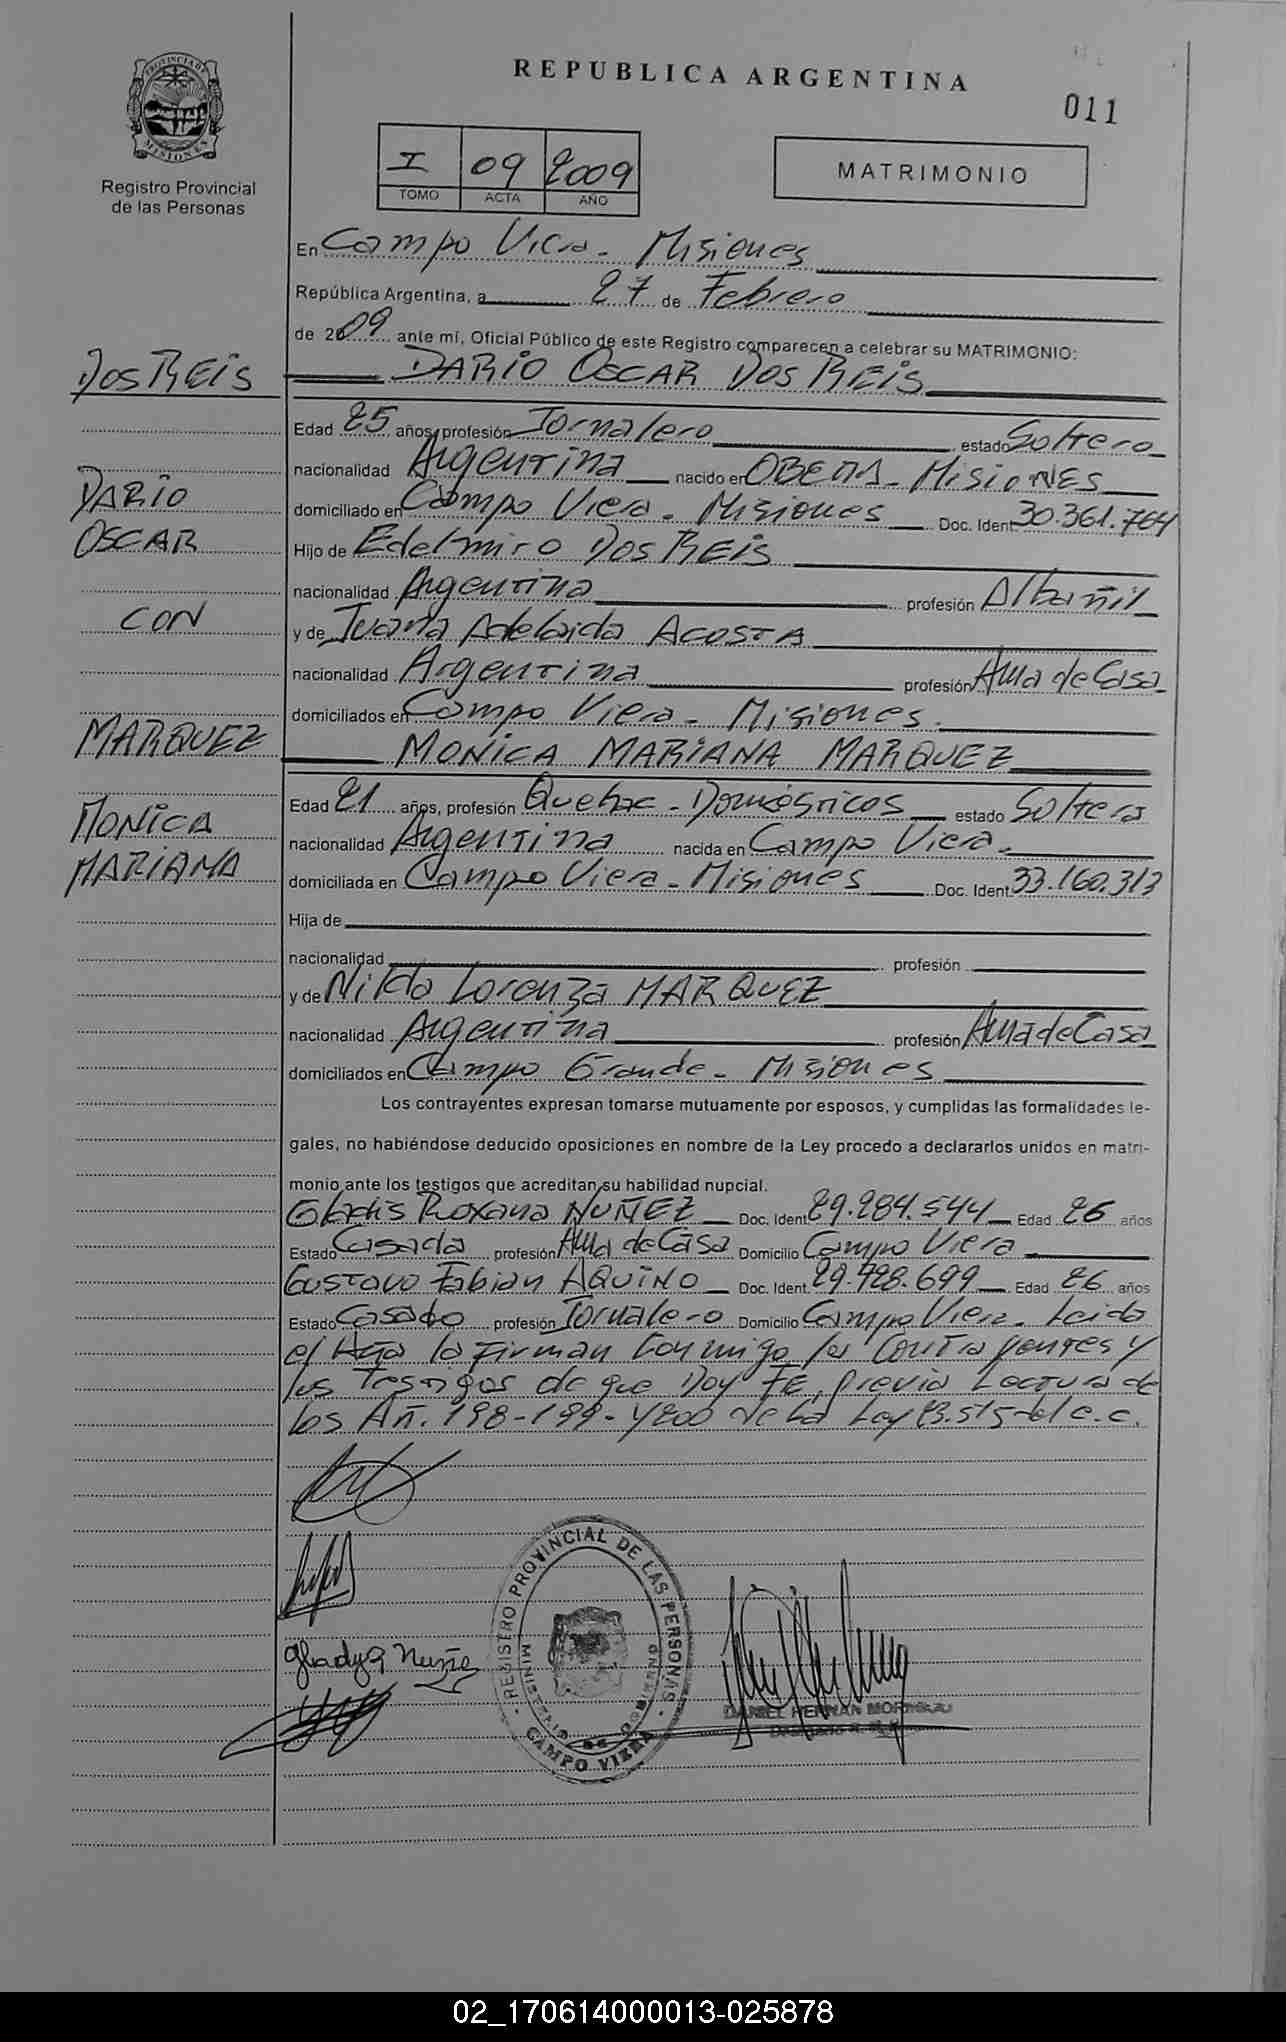 REPUBLICA ARGENTINA
011
PROVINCIA DE MISIONES
Registro Provincial
de las Personas
I 09 2009
TOMO ACTA AÑO
MATRIMONIO
En Campo Viera - Misiones
República Argentina, a 27 de Febrero
de 2009 ante mí, Oficial Público de este Registro comparecen a celebrar su MATRIMONIO:
DOS REIS DARIO OSCAR DOS REIS
Edad 25 años, profesión Jornalero estado Soltero
nacionalidad Argentina nacido en OBERA - MISIONES
DARIO domiciliado en Campo Viera - Misiones Doc. Ident. 30.361.764
OSCAR Hijo de Edelmiro DOS REIS
nacionalidad Argentina profesión Albañil
CON y de Juana Adelaida ACOSTA
nacionalidad Argentina profesión Ama de Casa
domiciliados en Campo Viera - Misiones.
MARQUEZ MONICA MARIANA MARQUEZ
Edad 21 años, profesión Quehac - Domésticos estado Soltera
MONICA nacionalidad Argentina nacida en Campo Viera -
MARIANA domiciliada en Campo Viera - Misiones Doc. Ident. 33.160.313
Hija de
nacionalidad profesión
y de Nilda Lorenza MARQUEZ
nacionalidad Argentina profesión Ama de Casa
domiciliados en Campo Grande - Misiones
Los contrayentes expresan tomarse mutuamente por esposos, y cumplidas las formalidades le-
gales, no habiéndose deducido oposiciones en nombre de la Ley procedo a declararlos unidos en matri-
monio ante los testigos que acreditan su habilidad nupcial.
Gladis Roxana NUÑEZ Doc. Ident. 29.284.544 Edad 26 años
Estado Casada profesión Ama de Casa Domicilio Campo Viera
Gustavo Fabian AQUINO Doc. Ident. 29.728.699 Edad 26 años
Estado Casado profesión Jornalero Domicilio Campo Viera - Leida
el Acta la Firman Conmigo los Contrayentes y
los Testigos de que Doy FE, previa Lectura de
los Art. 198-199- y 200 de la Ley 23.515 del C.C.
REGISTRO PROVINCIAL DE LAS PERSONAS
MINISTERIO DE GOBIERNO
CAMPO VIERA
Gladys Nuñe
DANIEL HERNAN
02_170614000013-025878